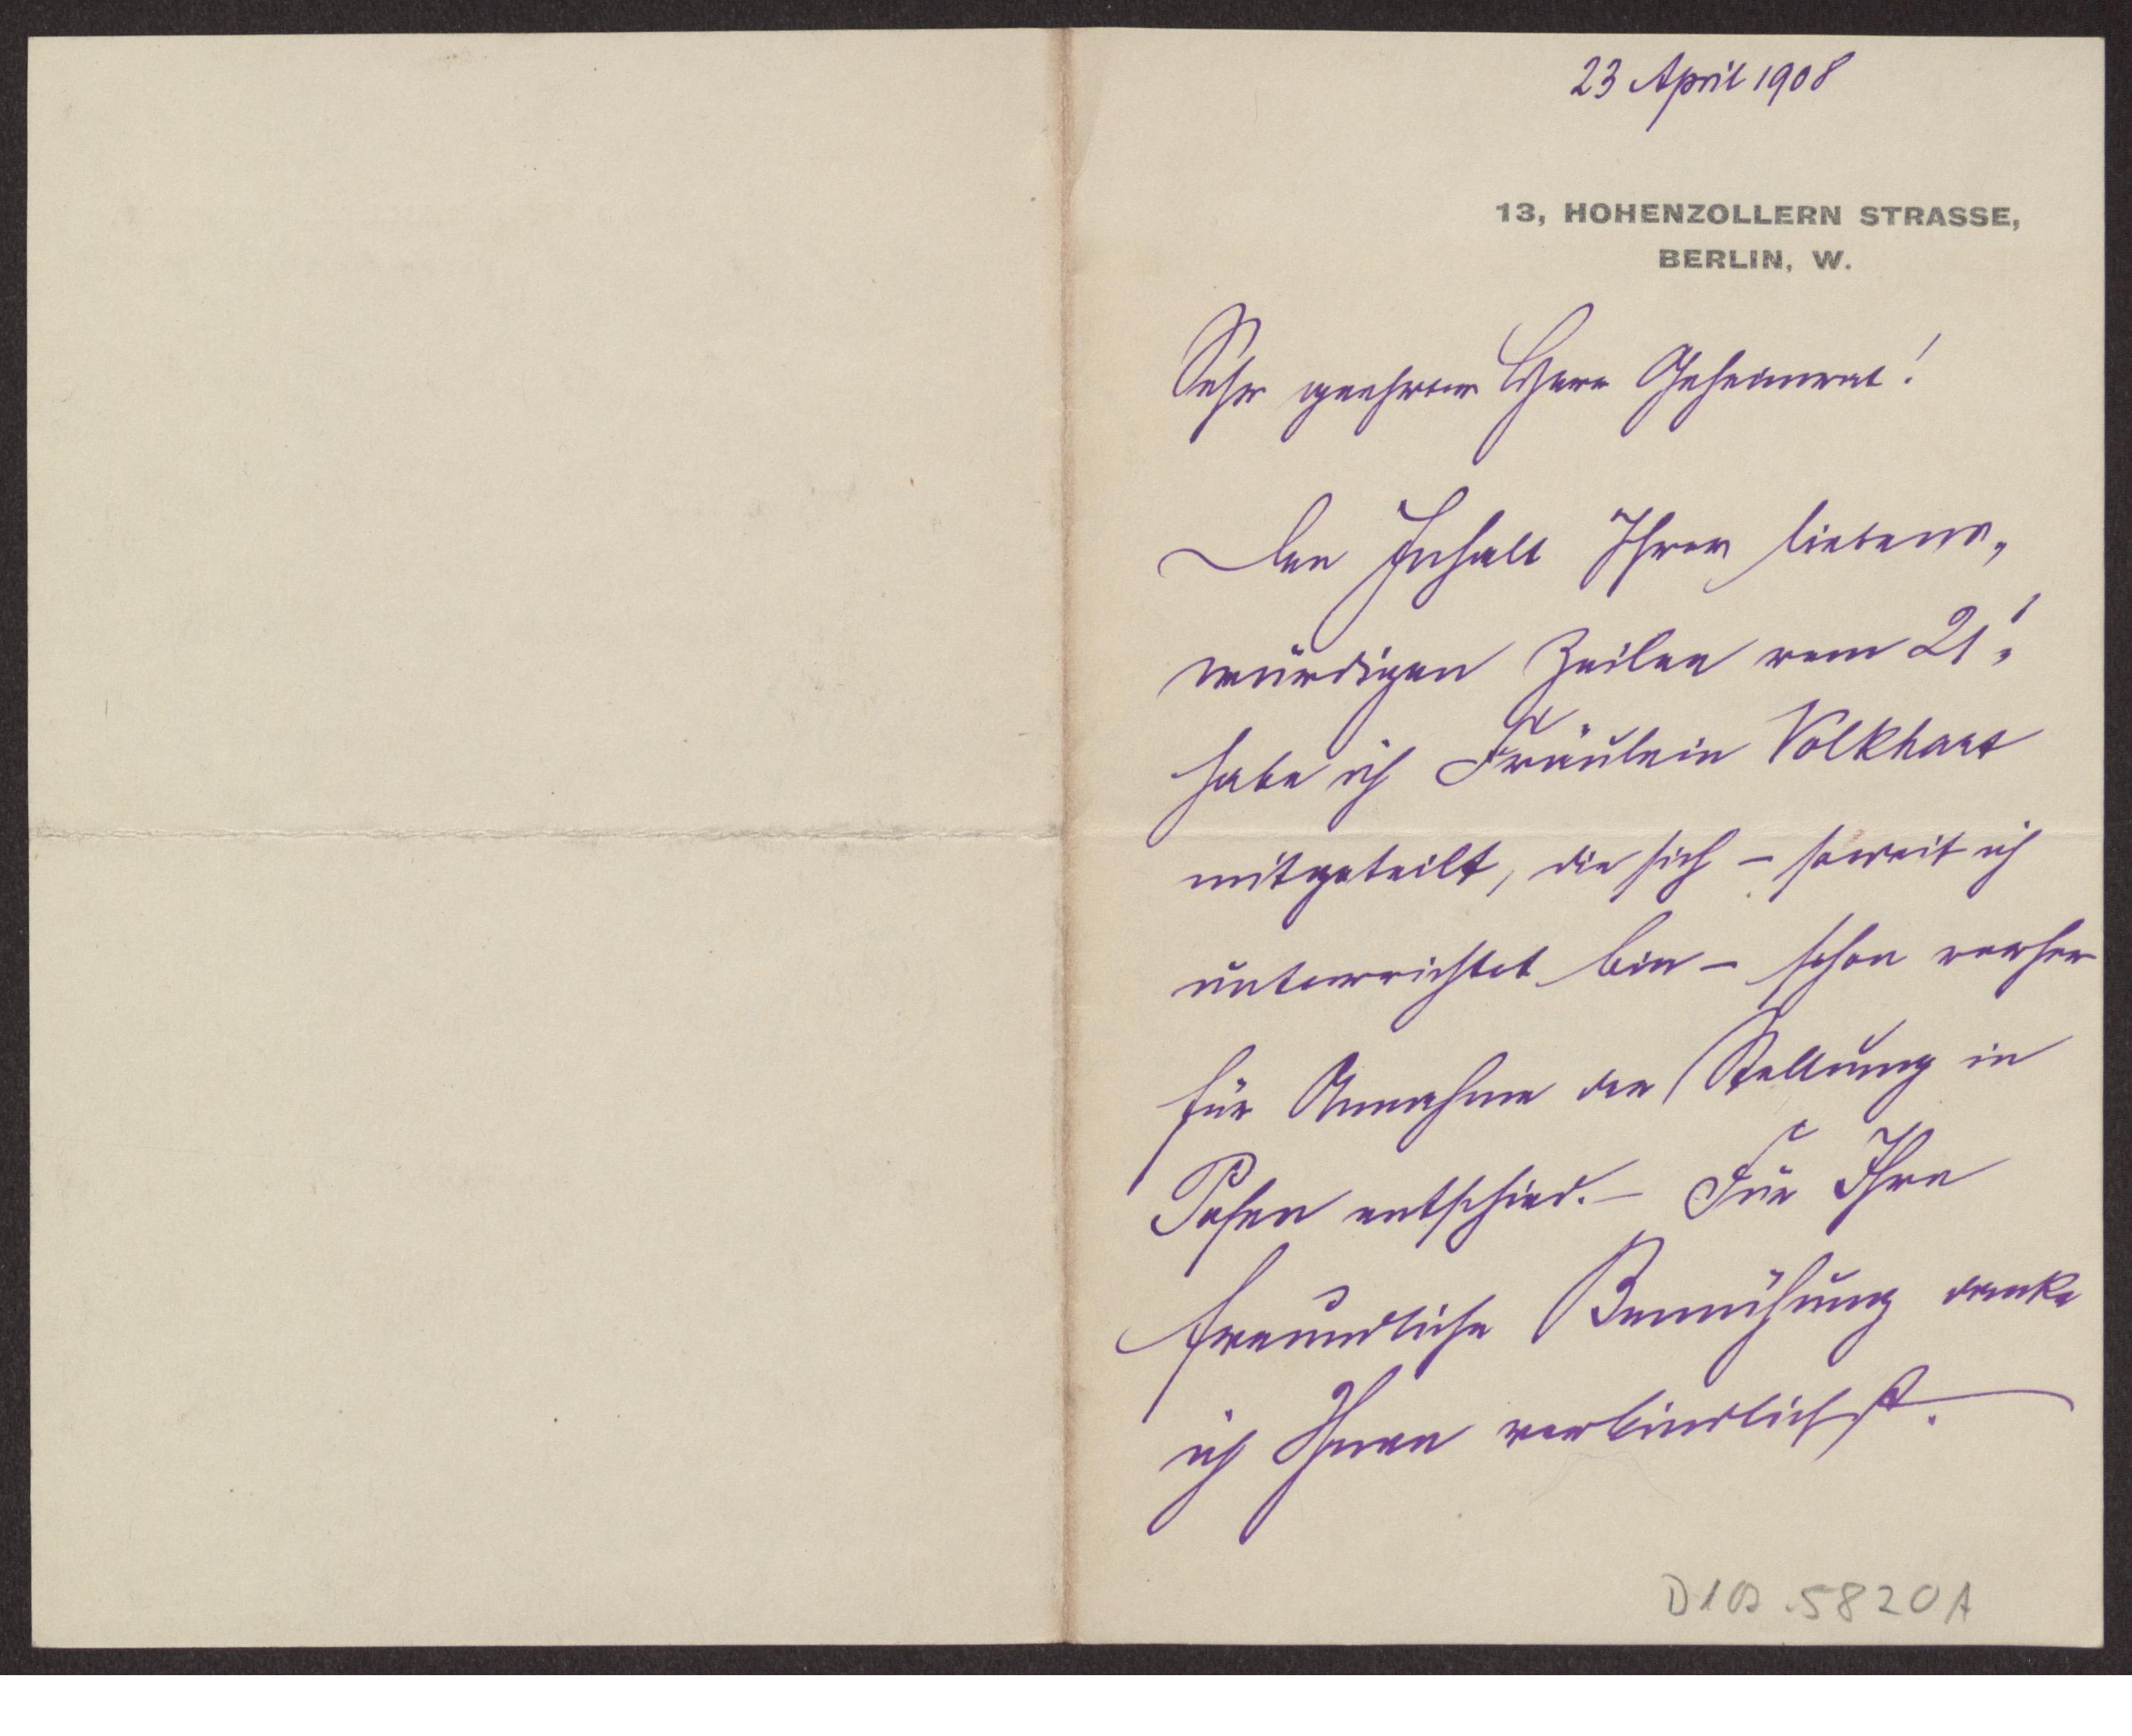 23 April 1908
13, HOHENZOLLERN STRASSE,
BERLIN, W.
Sehr geehrter Herr Geheimrat!
Den Inhalt Ihrer liebens-
würdigen Zeilen vom 21.
habe ich Fräulein Volkhart
mitgeteilt, die sich – soweit ich
unterrichtet bin – schon vorher
für Annahme der Stellung in
Posen entschied. – Für Ihre
freundliche Bemühung danke
ich Ihnen verbindlichst.
5820A